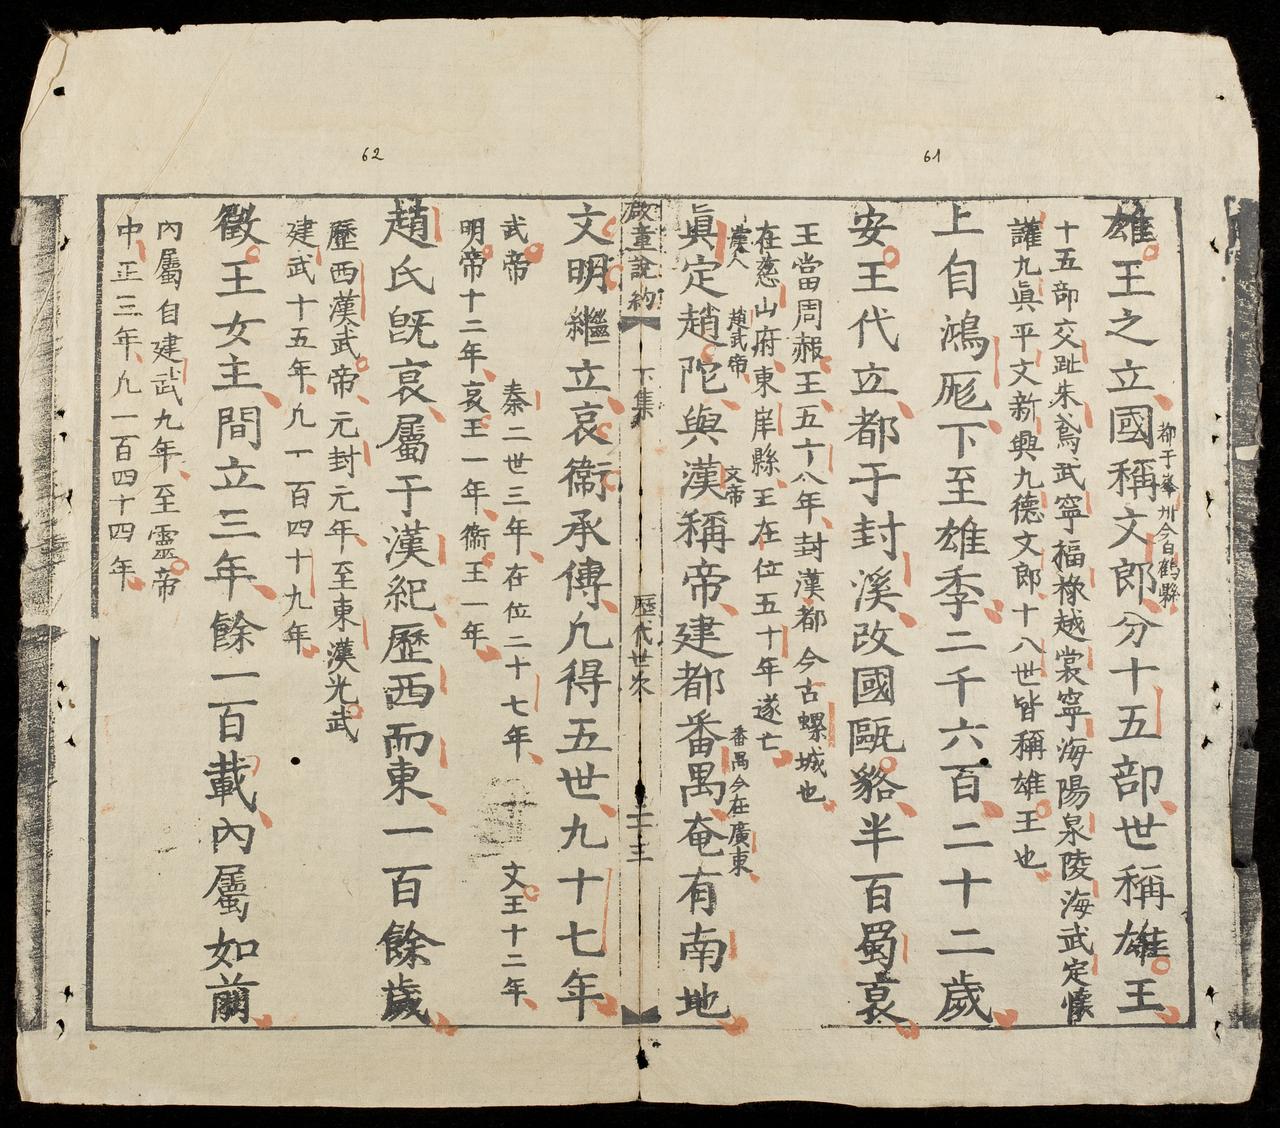 61
雄王之立國稱文郎分十五部世稱雄王
都于峯州今白鶴縣
十五部交趾朱鳶武寧福祿越裳寧海陽泉陵海武定懷
驩九眞平文新興九德文郎十八世皆稱雄王也
上自鴻厖下至雄季二千六百二十二歲
安王代立都于封溪改國甌貉半百蜀哀
王當周赧王五十八年封漢都今古螺城也
在慈山府東岸縣王在位五十年遂亡
眞定趙陀與漢稱帝建都番禺奄有南地
漢人
趙武帝
文帝
番禺今在廣東
啟童說約
下集
歷代世次
二十三
文明繼立哀衞承傳凡得五世九十七年
武帝 秦二世三年在位二十七年 文王十二年
明帝十二年哀王一年衞王一年
62
趙氏旣哀屬于漢紀歷西而東一百餘歲
歷西漢武帝元封元年至東漢光武
建武十五年凡一百四十九年
徵王女主間立三年餘一百載內屬如前
內屬自建武九年至靈帝
中正三年凡一百四十四年